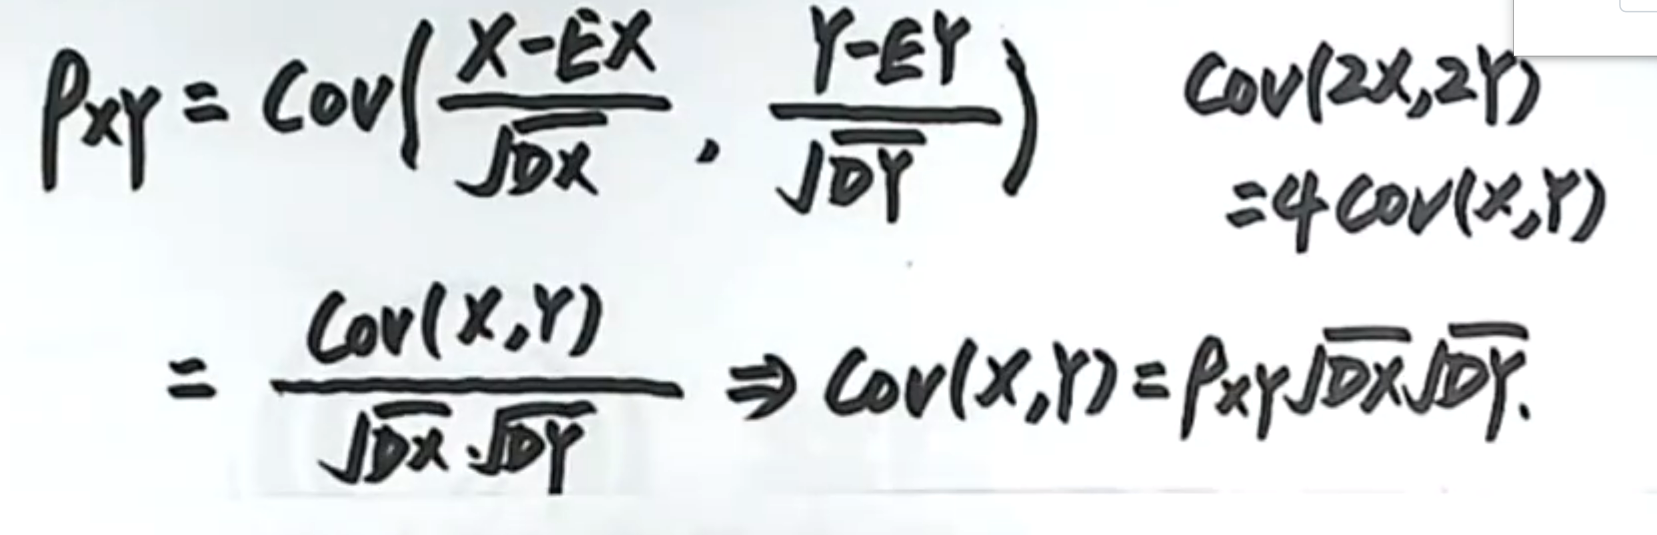 ρXY = Cov( (X-EX)/√DX , (Y-EY)/√DY )
Cov(2X,2Y)
=4Cov(X,Y)
= Cov(X,Y)/(√DX·√DY) ⇒ Cov(X,Y)=ρXY√DX√DY.